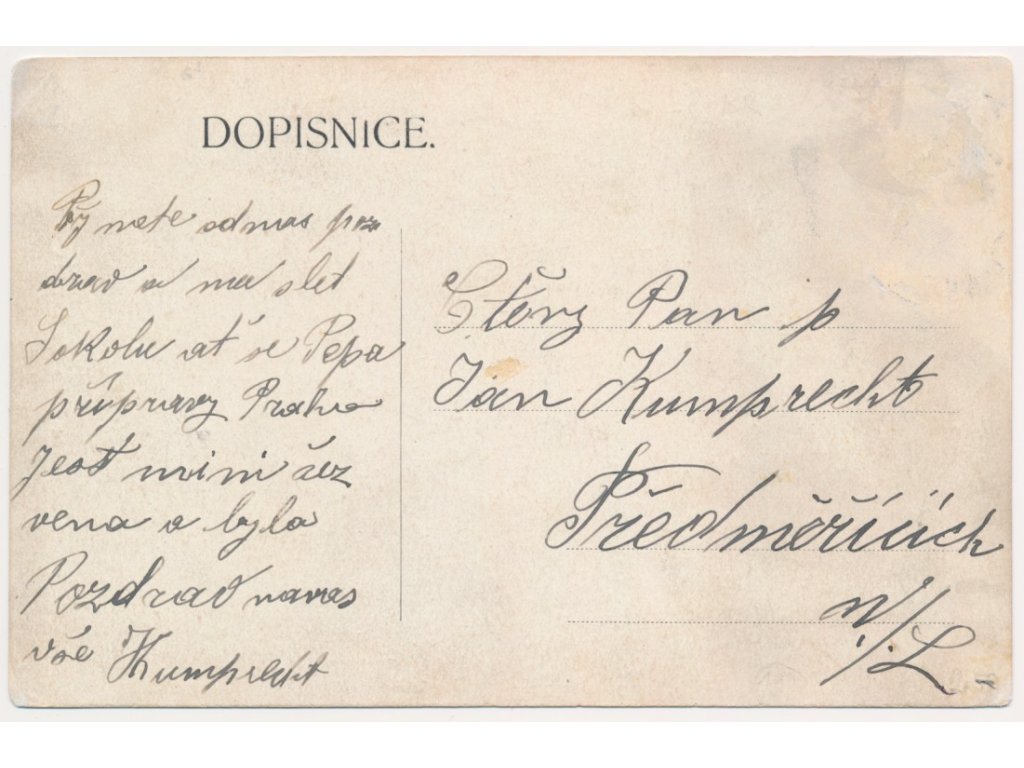 DOPISNICE.
Přijmete odnas poz
drav a na slet
Sokolu ať se Pepa
připravy Praha
Jest nini
vena a byla
Pozdrav navas
vše JKumprecht
Ctěny Pan p
Jan Kumprecht
Předměřicich
n./L.